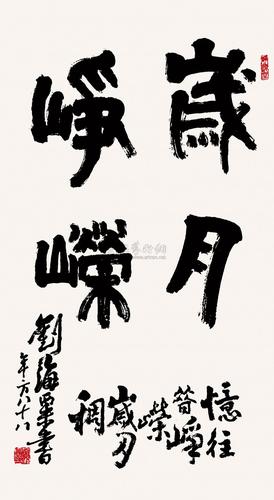 歲月
崢嶸
憶往
昔崢
嶸
歲月
稠
劉海粟書
年方八十八